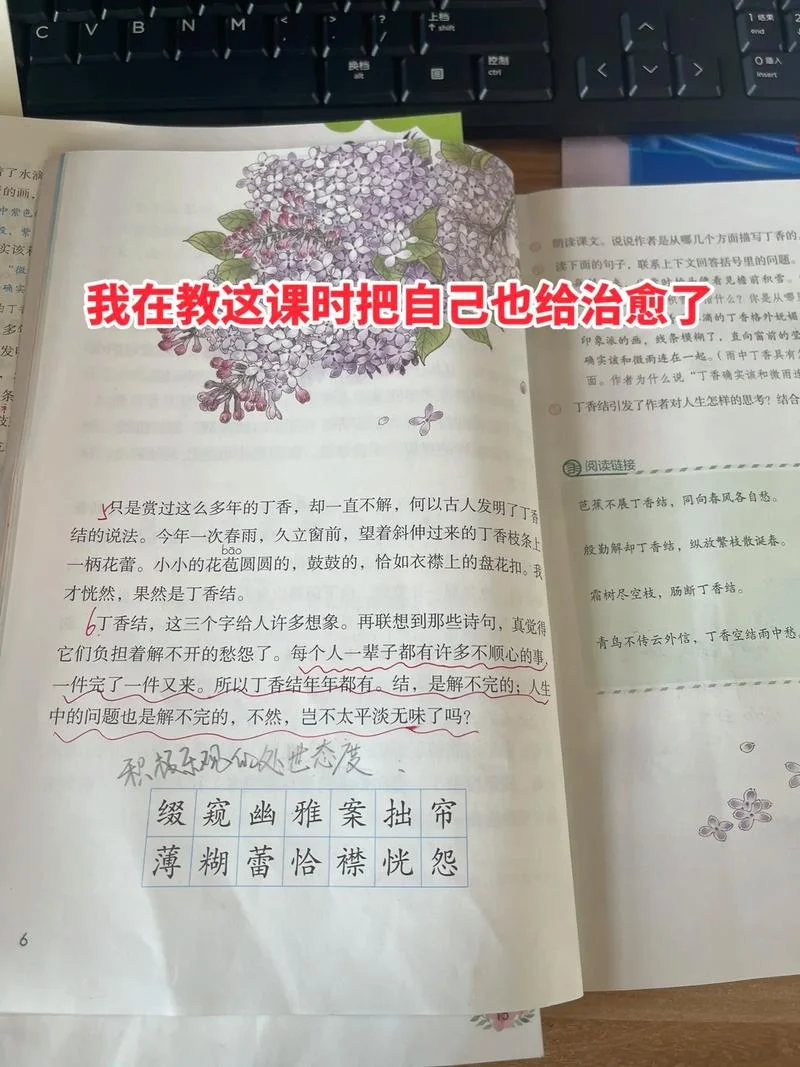 C V B N M < > ?
上档
shift
1 结束
end
换档
alt
控制
ctrl
0 插入
Insert
我在教这课时把自己也给治愈了
5只是赏过这么多年的丁香，却一直不解，何以古人发明了丁香
结的说法。今年一次春雨，久立窗前，望着斜伸过来的丁香枝条上
bāo
一柄花蕾。小小的花苞圆圆的，鼓鼓的，恰如衣襟上的盘花扣。我
才恍然，果然是丁香结。
6丁香结，这三个字给人许多想象。再联想到那些诗句，真觉得
它们负担着解不开的愁怨了。每个人一辈子都有许多不顺心的事，
一件完了一件又来。所以丁香结年年都有。结，是解不完的；人生
中的问题也是解不完的，不然，岂不太平淡无味了吗？
积极乐观的处世态度
缀 窥 幽 雅 案 拙 帘
薄 糊 蕾 恰 襟 恍 怨
6
朗读课文。说说作者是从哪几个方面描写丁香的。
读下面的句子，联系上下文回答括号里的问题。
看见檐前积雪。
指什么？你是从哪
滴的丁香格外妩媚
印象派的画，线条模糊了，直向窗前的莹
确实该和微雨连在一起。（雨中丁香具有怎
面。作者为什么说“丁香确实该和微雨连
丁香结引发了作者对人生怎样的思考？结合
阅读链接
芭蕉不展丁香结，同向春风各自愁。
殷勤解却丁香结，纵放繁枝散诞春。
霜树尽空枝，肠断丁香结。
青鸟不传云外信，丁香空结雨中愁。